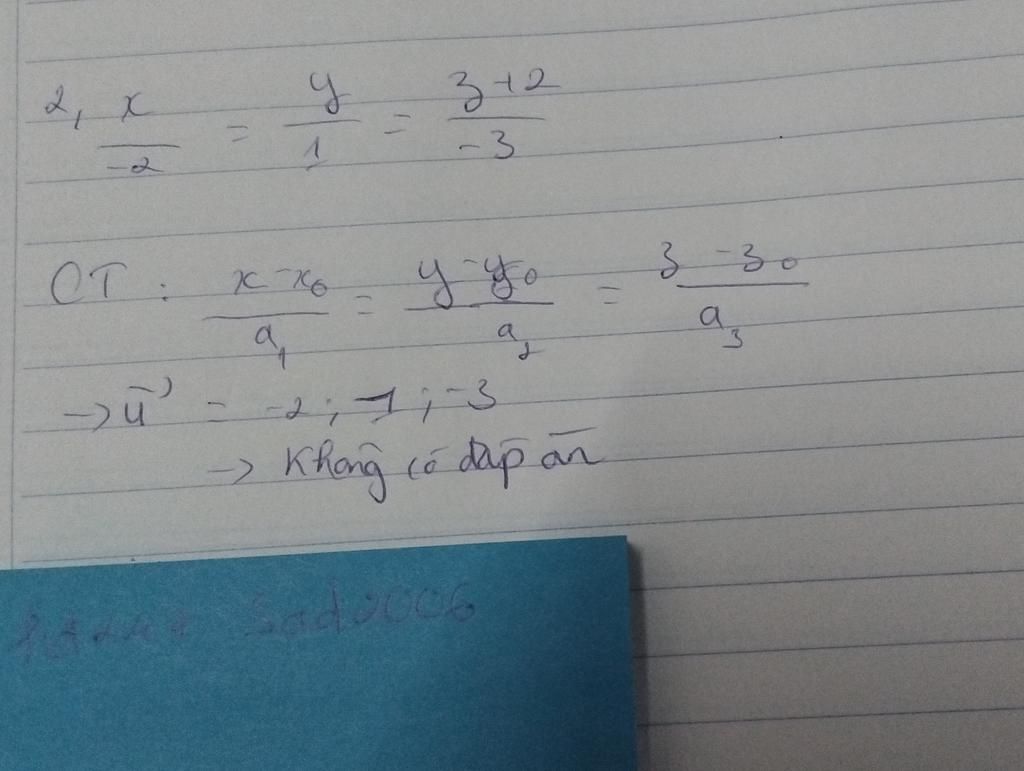 2, x/-2 = y/1 = z+2/-3
CT : x-x₀/a₁ = y-y₀/a₂ = z-z₀/a₃
→ u⃗ = -2 ; 1 ; -3
→ Không có đáp án